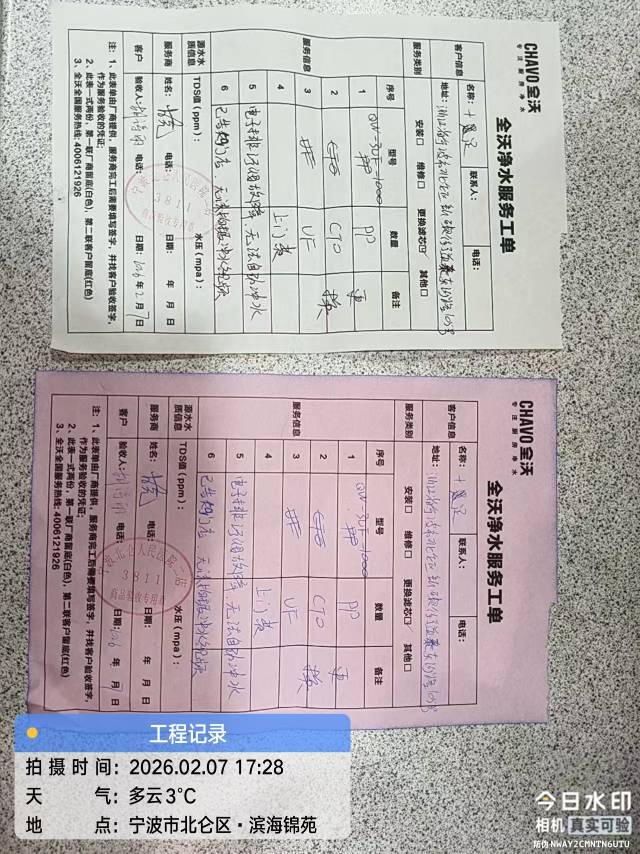 CHAVO全沃
专注厨房净水
全沃净水服务工单
客户信息
名称：十足
联系人：
电话：
地址：
服务类别
安装☐
维修☐
更换滤芯☑
其他☐
服务信息
序号
型号
数量
备注
1
PP
2
CTO
换
3
UF
4
上门费
5
电子排污阀故障，无法自动冲水
6
源水水质信息
TDS值（ppm）：
水压（mpa）：
服务商
姓名：
电话：
日期：
年 月 日
客户
验收人：
电话：
日期：2026年2月7日
注：1、此表单由厂商提供，服务商完工后需要填写签字，并找客户验收签字，
作为服务验收的凭证；
2、此表一式两份，第一联厂商留底(白色)，第二联客户留底(红色)
3、全沃全国服务热线：4006121926
3811
商品验收专用章
CHAVO全沃
专注厨房净水
全沃净水服务工单
客户信息
名称：十足
联系人：
电话：
地址：
服务类别
安装☐
维修☐
更换滤芯☑
其他☐
服务信息
序号
型号
数量
备注
1
PP
2
CTO
换
3
UF
4
上门费
5
电子排污阀故障，无法自动冲水
6
源水水质信息
TDS值（ppm）：
水压（mpa）：
服务商
姓名：
电话：
日期：
年 月 日
客户
验收人：
电话：
日期：2026年 月 日
注：1、此表单由厂商提供，服务商完工后需要填写签字，并找客户验收签字，
作为服务验收的凭证；
2、此表一式两份，第一联厂商留底(白色)，第二联客户留底(红色)
3、全沃全国服务热线：4006121926
3811
商品验收专用章
工程记录
拍摄时间：2026.02.07 17:28
天 气：多云3℃
地 点：宁波市北仑区·滨海锦苑
今日水印
相机 真实可验
防伪 NWAY2CMNTN6UTU